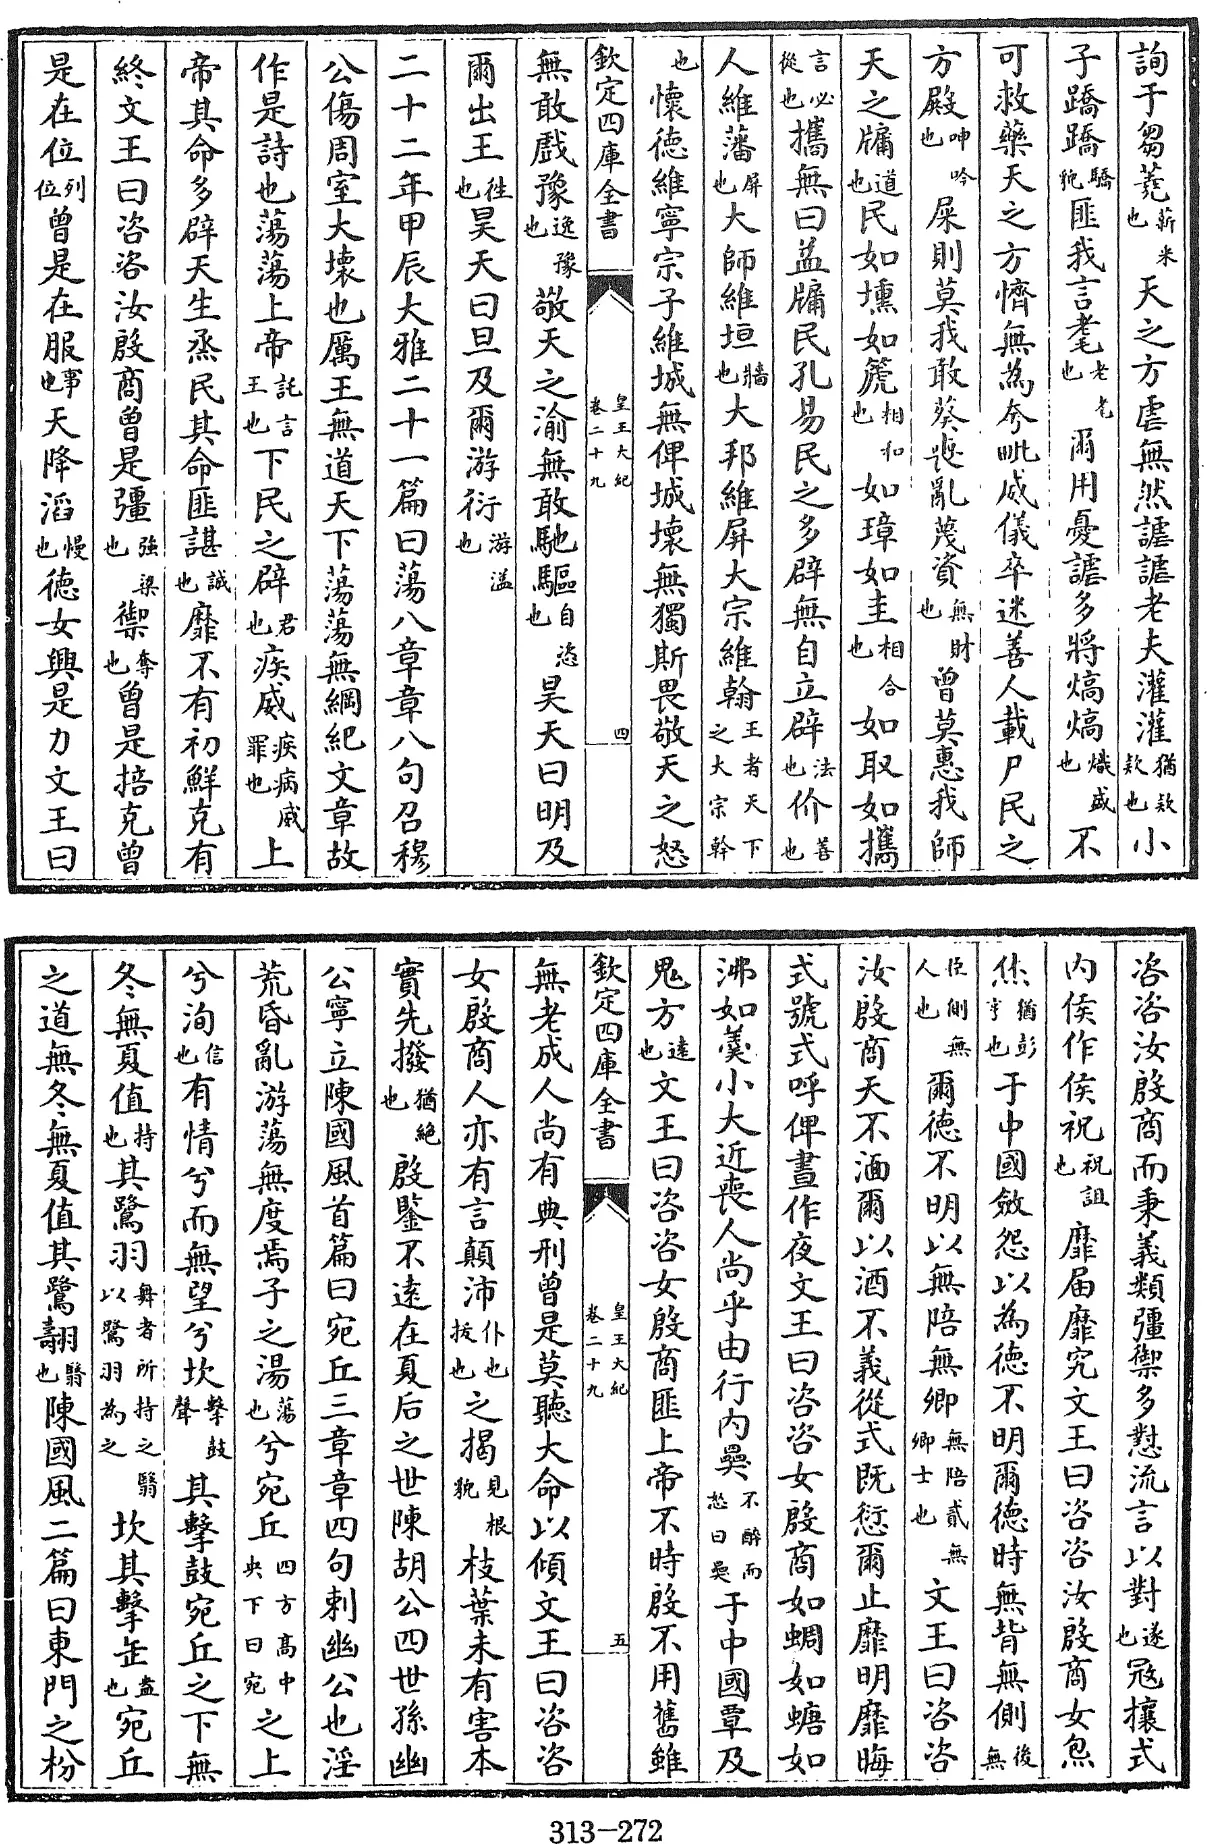 詢于芻蕘薪采也天之方虐無然謔謔老夫灌灌猶款款也小
子蹻蹻驕貌匪我言耄老耄也爾用憂謔多將熇熇熾盛也不
可救藥天之方懠無為夸毗威儀卒迷善人載尸民之
方殿呻吟也屎則莫我敢葵喪亂蔑資無財也曾莫惠我師
天之牖道也民如壎如篪相和也如璋如圭相合也如取如攜
言必從也攜無曰益牖民孔易民之多辟無自立辟法也价善也
人維藩屏也大師維垣牆也大邦維屏大宗維翰王者天下之大宗幹
也懷德維寧宗子維城無俾城壞無獨斯畏敬天之怒
欽定四庫全書 皇王大紀卷二十九 四
無敢戲豫逸豫也敬天之渝無敢馳驅自恣也昊天曰明及
爾出王往也昊天曰旦及爾游衍游溢也
二十二年甲辰大雅二十一篇曰蕩八章章八句召穆
公傷周室大壞也厲王無道天下蕩蕩無綱紀文章故
作是詩也蕩蕩上帝託言王也下民之辟君也疾威疾病威罪也上
帝其命多辟天生烝民其命匪諶誠也靡不有初鮮克有
終文王曰咨咨汝殷商曾是彊強梁也禦奪也曾是掊克曾
是在位列位曾是在服事也天降滔慢也德女興是力文王曰
咨咨汝殷商而秉義類彊禦多懟流言以對遂也寇攘式
内侯作侯祝祝詛也靡届靡究文王曰咨咨汝殷商女炰
烋猶彭亨也于中國斂怨以為德不明爾德時無背無側後無
臣側無人也爾德不明以無陪無卿無陪貳無卿士也文王曰咨咨
汝殷商天不湎爾以酒不義從式既愆爾止靡明靡晦
式號式呼俾晝作夜文王曰咨咨女殷商如蜩如螗如
沸如羹小大近喪人尚乎由行内奰不醉而怒曰奰于中國覃及
鬼方遠也文王曰咨咨女殷商匪上帝不時殷不用舊雖
欽定四庫全書 皇王大紀卷二十九 五
無老成人尚有典刑曾是莫聽大命以傾文王曰咨咨
女殷商人亦有言顛沛仆也拔也之揭見根貌枝葉未有害本
實先撥猶絶也殷鑒不遠在夏后之世陳胡公四世孫幽
公寧立陳國風首篇曰宛丘三章章四句刺幽公也淫
荒昏亂游蕩無度焉子之湯蕩也兮宛丘四方高中央下曰宛之上
兮洵信也有情兮而無望兮坎擊鼓聲其擊鼓宛丘之下無
冬無夏值持也其鷺羽舞者所持之翳以鷺羽為之坎其擊缶盎也宛丘
之道無冬無夏值其鷺翿翳也陳國風二篇曰東門之枌
313-272